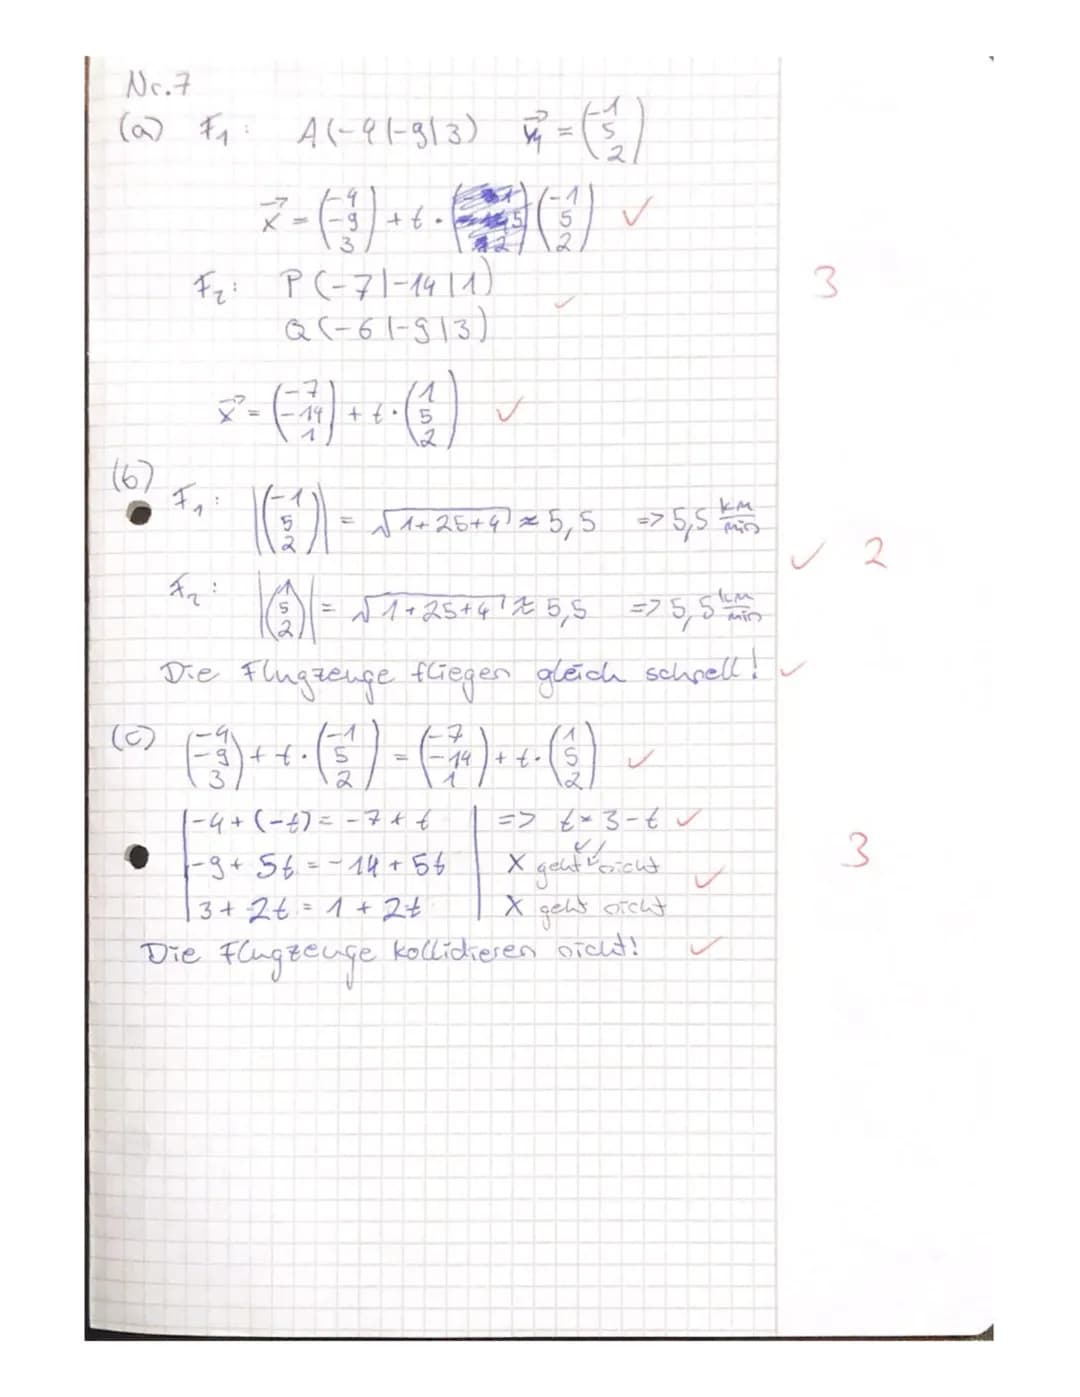 Nr.7
(a) F₁: A(-4|-9|3) v₁⃗ = (-1 5 2)
x⃗ = (-4 -9 3) + t · (-1 5 2) ✓
F₂: P(-7|-14|1) 3
Q(-6|-9|3) ✓
x⃗ = (-7 -14 1) + t · (1 5 2) ✓
(b)
F₁: |(-1 5 2)| = √1+25+4 ≈ 5,5 => 5,5 km/min
✓ 2
F₂: |(1 5 2)| = √1+25+4 ≈ 5,5 => 5,5 km/min
Die Flugzeuge fliegen gleich schnell! ✓
(c) (-4 -9 3) + t · (-1 5 2) = (-7 -14 1) + t · (1 5 2) ✓
|-4+(-t) = -7+t | => t = 3-t ✓
|-9+5t = -14+5t | X geht nicht ✓ 3
|3+2t = 1+2t | X geht nicht
Die Flugzeuge kollidieren nicht! ✓